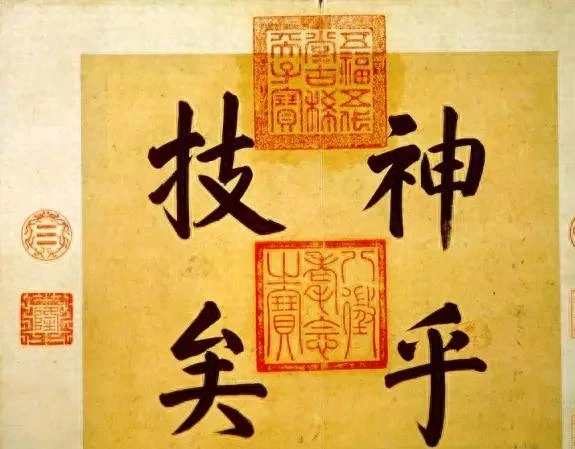 神乎
技矣
五福五代
堂古稀
天子寶
八徵
耄念
之寶
隆